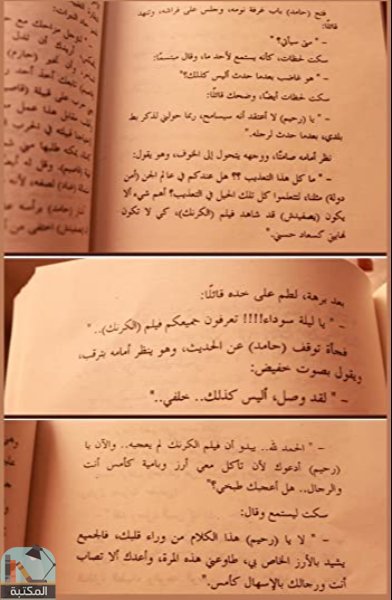 فتح (حامد) باب غرفة نومه، وجلس على فراشه، وتنهد
قائلًا:
– " متى سيأتي؟ "
سكت لحظات، كأنه يستمع لأحد ما، وقال مبتسمًا:
– " هو غاضب بعدما حدث أليس كذلك؟ "
سكت لحظات أيضًا، وضحك قائلًا:
– " يا (رحيم) لا أعتقد أنه سيسامح، ربما حولني لذكر بط
بلدي، بعدما حدث لرحلته."
نظر أمامه صامتًا، ووجهه يتحول إلى الخوف، وهو يقول:
– " ما كل هذا التعذيب ؟؟ هل عندكم في عالم الجن (أمن
دولة) مثلنا، لتتعلموا كل تلك الحيل في التعذيب؟ أهم شيء ألا
يكون (يصفيدش) قد شاهد فيلم (الكرنك)، كي لا تكون
نهايتي كسعاد حسني."
بعد برهة، لطم على خده قائلًا:
– " يا ليلة سوداء!!!! تعرفون جميعكم فيلم (الكرنك).. "
فجأة توقف (حامد) عن الحديث، وهو ينظر أمامه بترقب،
ويقول بصوت خفيض:
– " لقد وصل، أليس كذلك.. خلفي.."
– " الحمد لله.. يبدو أن فيلم الكرنك لم يعجبه.. والآن يا
(رحيم) أدعوك لأن تأكل معي أرز وبامية كأمس أنت
والرجال.. هل أعجبك طبخي؟"
سكت ليستمع وقال:
– " لا يا (رحيم) هذا الكلام من وراء قلبك، فالجميع
يشيد بالأرز الخاص بي، طاوعني هذه المرة، وأعدك ألا تصاب
أنت ورجالك بالإسهال كأمس."
المكتبة